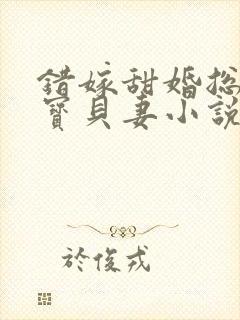 錯嫁甜婚總
寶貝妻小說
於俊戎